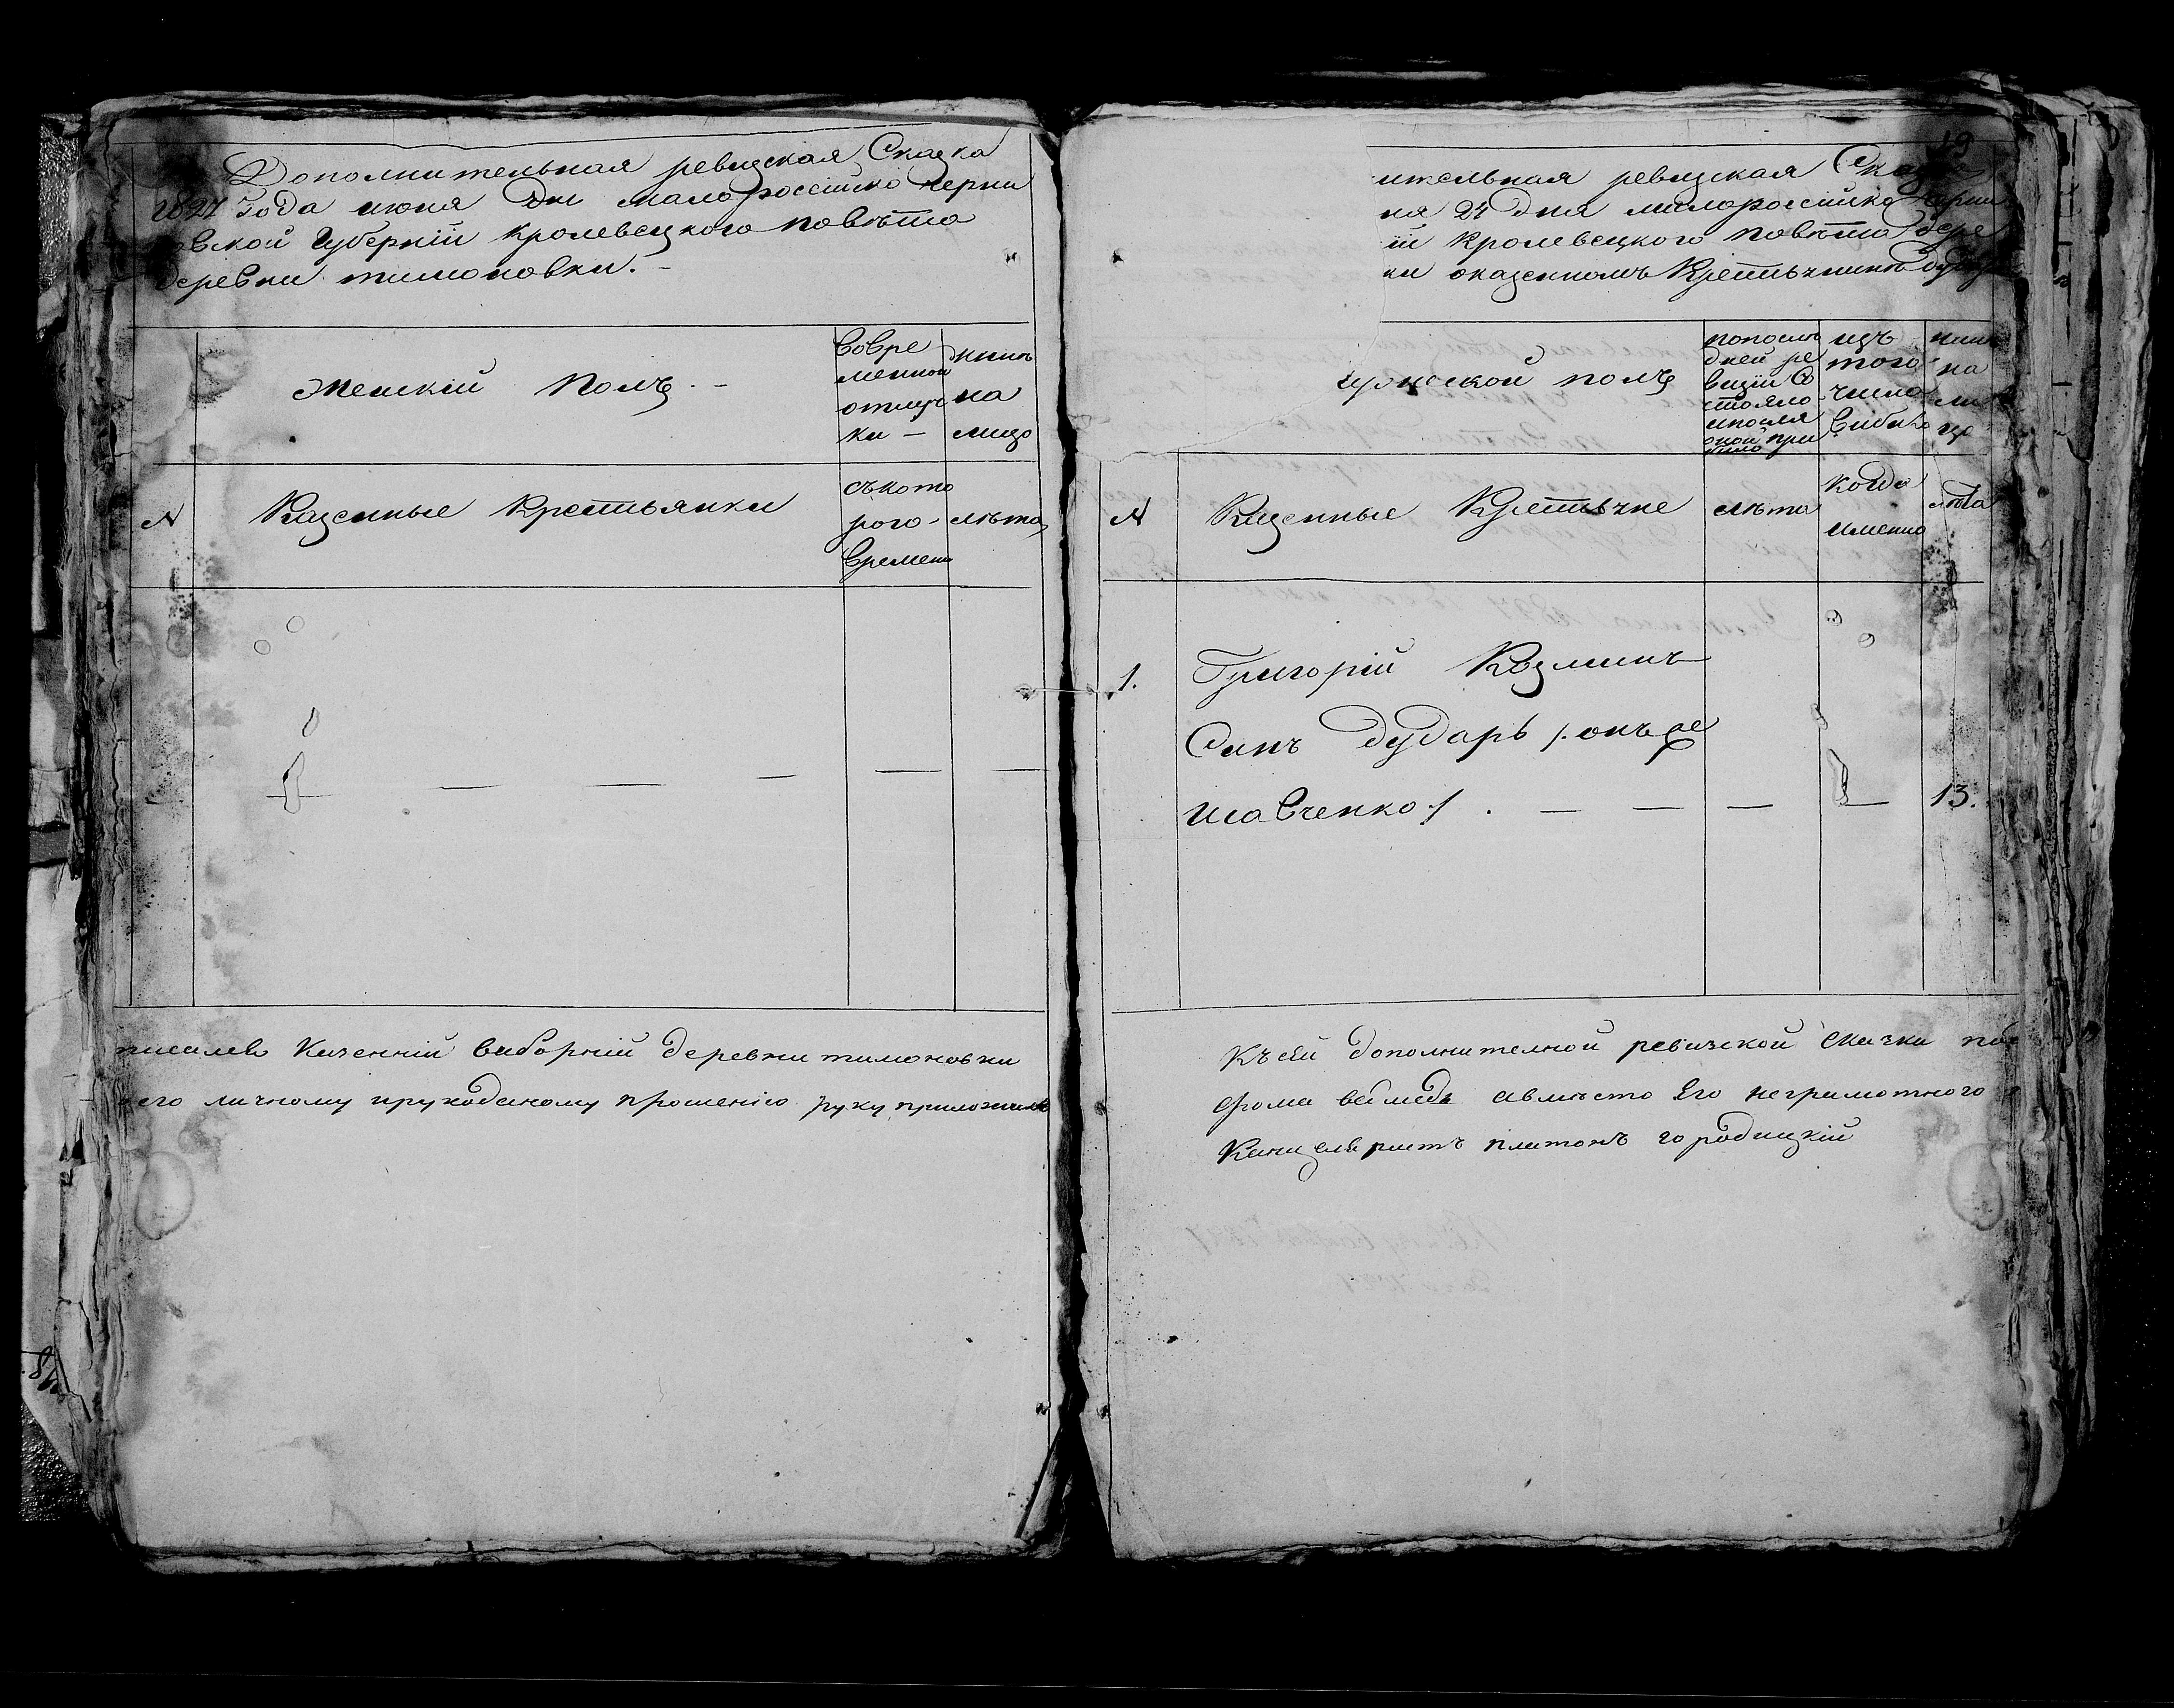 Дополнительная ревизская Сказка
1827 года июня Дня малороссійско черни
овской губерніи кролевецкого повѣта
деревни тимоновки. -
Женскій Полъ. -
Во вре
менной
отлуч
ки -
нинѣ
на
лицо
N
Казенные Крестьянки
съ кото
рого
времени
лѣта
писалев Казенній виборній деревни тимоновки
его личному прукоданому прошенію руку приложилъ
19
ительная ревизская Сказка
ня 24 Дня малороссійско черни
іи Кролевецкого повѣта дере
ки оказенномъ Крестьянинѣ
мужеской полъ
по послѣ
дней ре
визіи Со
стояло
и после
оной при
било
изъ
того
числа
вибило
нинѣ
на
ли
цо
N
Казенные Крестьяне
лѣта
когда
именно
лѣта
1.
Григорій Козминъ
Синъ дударь /. онъ же
шавченко ./ . — — — — 13.
Къ сей дополнителной ревизской сказки
фома вместо Его неграмотного
Канцеляристъ платонъ городицкій